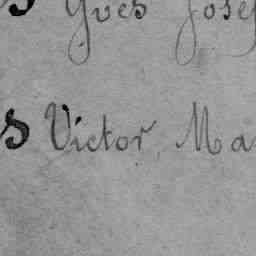 s Yves Josep
s Victor, Ma